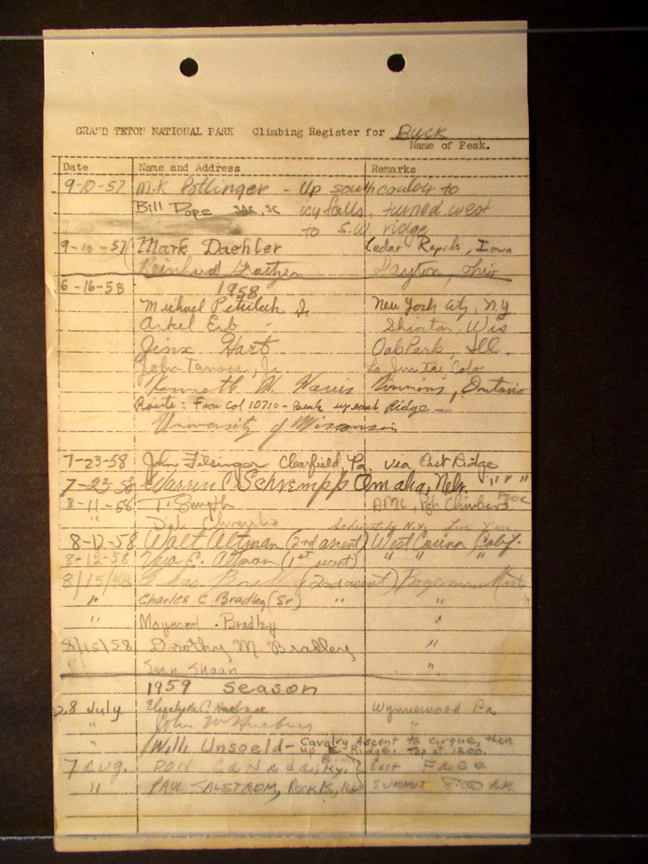 GRAND TETON NATIONAL PARK Climbing Register for BUCK
Name of Peak.
Date Name and Address Remarks
9-10-57 M.K. Pottinger - Up south couloir to
Bill Pope icy falls, turned west
to S.W. ridge
9-10-57 Mark Daehler Cedar Rapids, Iowa
Reinhard Dayton, Ohio
6-16-58 1958
Michael Jr New York City, NY
Arkel Erb Wis
Jinx Hart Oak Park, Ill.
John Jr. La Junta, Colo
Kenneth W. Timmins, Ontario
Route: From Col 10710 - Ridge
University of Wisconsin
7-23-58 John Filsinger Clearfield Pa. via East Ridge
7-23-58 Warren Schrempp Omaha, Nebr. " " "
8-11-58 T. Smyth AMC, Pgh Climbers
" Dale
8-12-58 Walt Altman (2nd ascent) West Covina Calif.
8-12-58 E. Altman (1st ascent) " " "
8/15/58 Bradley (2nd ascent) Bozeman Mont
" Charles C Bradley (Sr) " "
" Maynard Bradley "
8/15/58 Dorothy M. Bradley
8/ Sean "
1959 season
28 July Wynnewood Pa
" John W "
" Willi Unsoeld - Cavalry Ascent to cirque, then
up Ridge. Top at 1200.
7 AUG. DON East FACE
" PAUL SALSTROM, SUMMIT 8:00 A.M.